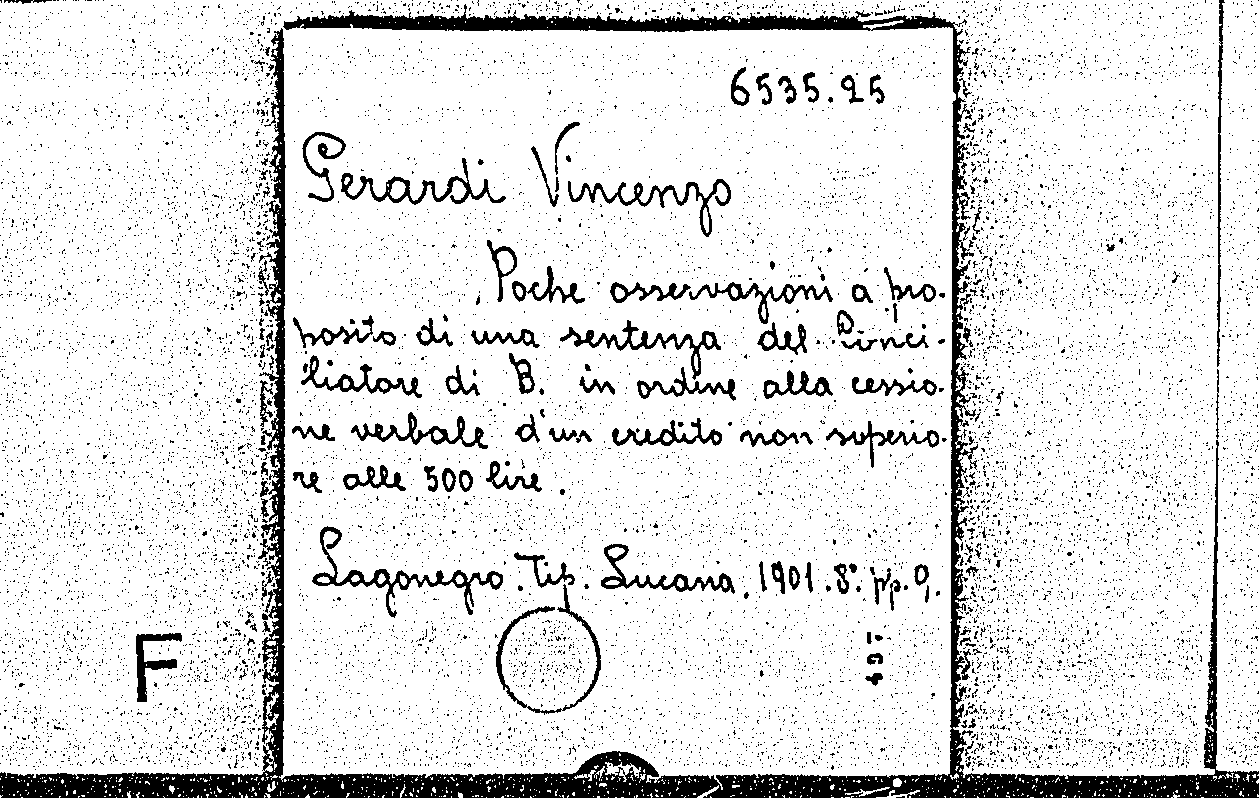 6535.25
Gerardi Vincenzo
Poche osservazioni a pro-
posito di una sentenza del Conci-
liatore di B. in ordine alla cessio-
ne verbale d'un credito non superio-
re alle 500 lire.
Lagonegro. Tip. Lucana. 1901. 8° pp. 9.
F